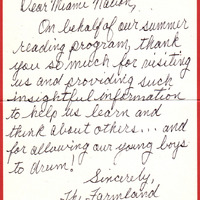 Dear Miami Nation,
On behalf of our summer
reading program, thank
you so much for visiting
us and providing such
insightful information
to help us learn and
think about others... and
for allowing our young boys
to drum.
Sincerely,
The Farmland